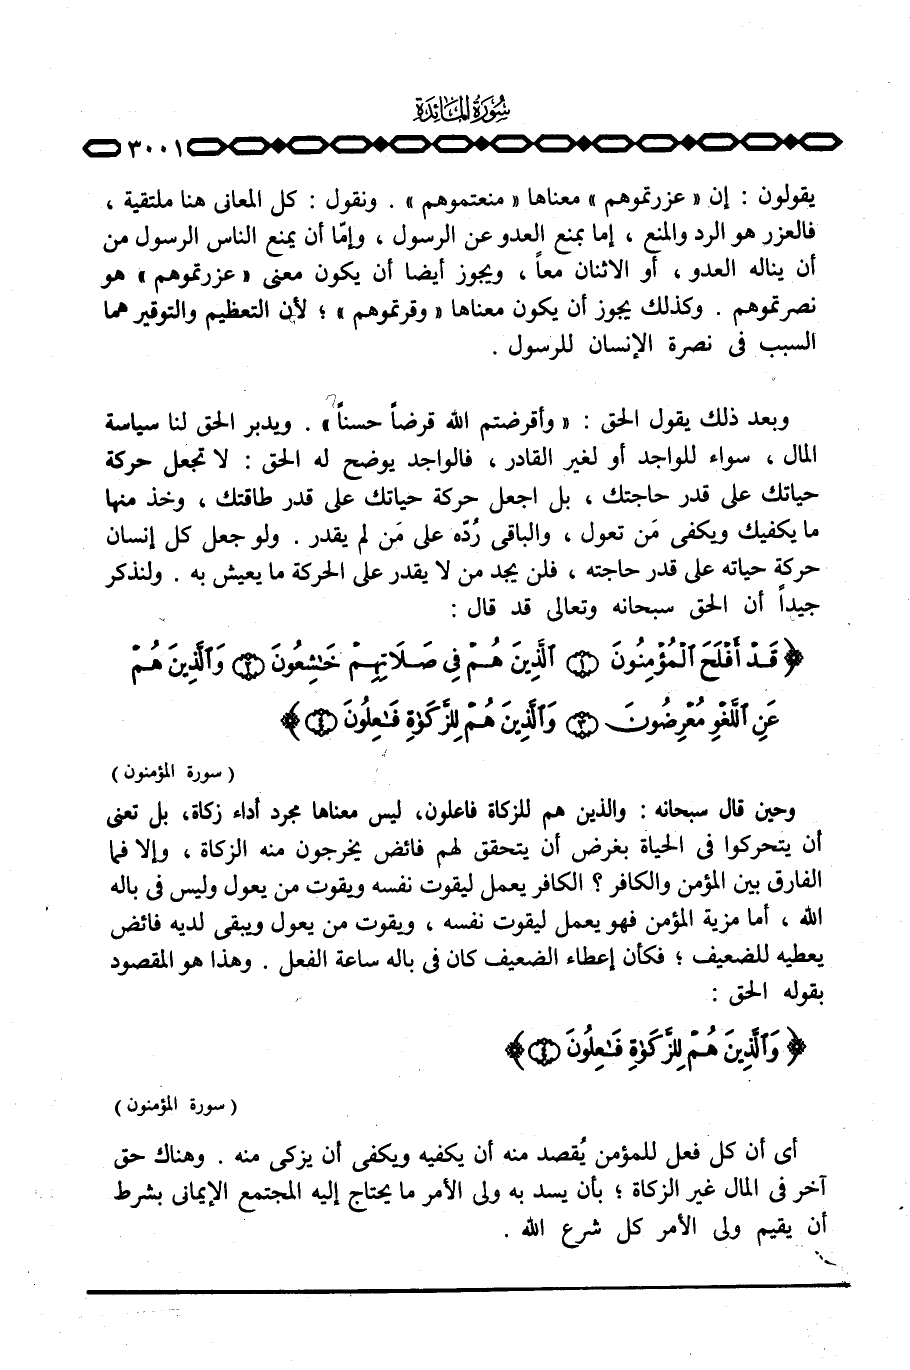 سُورَةُ المَائِدَةِ
٣٠٠١
يقولون : إن « عزرتموهم » معناها « منعتموهم » . ونقول : كل المعانى هنا ملتقية ،
فالعزر هو الرد والمنع ، إما بمنع العدو عن الرسول ، وإمّا أن يمنع الناس الرسول من
أن يناله العدو ، أو الاثنان معاً ، ويجوز أيضا أن يكون معنى « عزرتموهم » هو
نصرتموهم . وكذلك يجوز أن يكون معناها « وقرتموهم » ؛ لأن التعظيم والتوقير هما
السبب فى نصرة الإنسان للرسول .
وبعد ذلك يقول الحق : « وأقرضتم الله قرضاً حسناً » . ويدبر الحق لنا سياسة
المال ، سواء للواجد أو لغير القادر ، فالواجد يوضح له الحق : لا تجعل حركة
حياتك على قدر حاجتك ، بل اجعل حركة حياتك على قدر طاقتك ، وخذ منها
ما يكفيك ويكفى مَن تعول ، والباقى رُدّه على مَن لم يقدر . ولو جعل كل إنسان
حركة حياته على قدر حاجته ، فلن يجد من لا يقدر على الحركة ما يعيش به . ولنذكر
جيداً أن الحق سبحانه وتعالى قد قال :
﴿ قَدْ أَفْلَحَ ٱلْمُؤْمِنُونَ ١ ٱلَّذِينَ هُمْ فِى صَلَاتِهِمْ خَٰشِعُونَ ٢ وَٱلَّذِينَ هُمْ
عَنِ ٱللَّغْوِ مُعْرِضُونَ ٣ وَٱلَّذِينَ هُمْ لِلزَّكَوٰةِ فَٰعِلُونَ ٤ ﴾
( سورة المؤمنون )
وحين قال سبحانه : والذين هم للزكاة فاعلون، ليس معناها مجرد أداء زكاة، بل تعنى
أن يتحركوا فى الحياة بغرض أن يتحقق لهم فائض يخرجون منه الزكاة ، وإلا فما
الفارق بين المؤمن والكافر ؟ الكافر يعمل ليقوت نفسه ويقوت من يعول وليس فى باله
الله ، أما مزية المؤمن فهو يعمل ليقوت نفسه ، ويقوت من يعول ويبقى لديه فائض
يعطيه للضعيف ؛ فكأن إعطاء الضعيف كان فى باله ساعة الفعل . وهذا هو المقصود
بقوله الحق :
﴿ وَٱلَّذِينَ هُمْ لِلزَّكَوٰةِ فَٰعِلُونَ ٤ ﴾
( سورة المؤمنون )
أى أن كل فعل للمؤمن يُقصد منه أن يكفيه ويكفى أن يزكى منه . وهناك حق
آخر فى المال غير الزكاة ؛ بأن يسد به ولى الأمر ما يحتاج إليه المجتمع الإيمانى بشرط
أن يقيم ولى الأمر كل شرع الله .